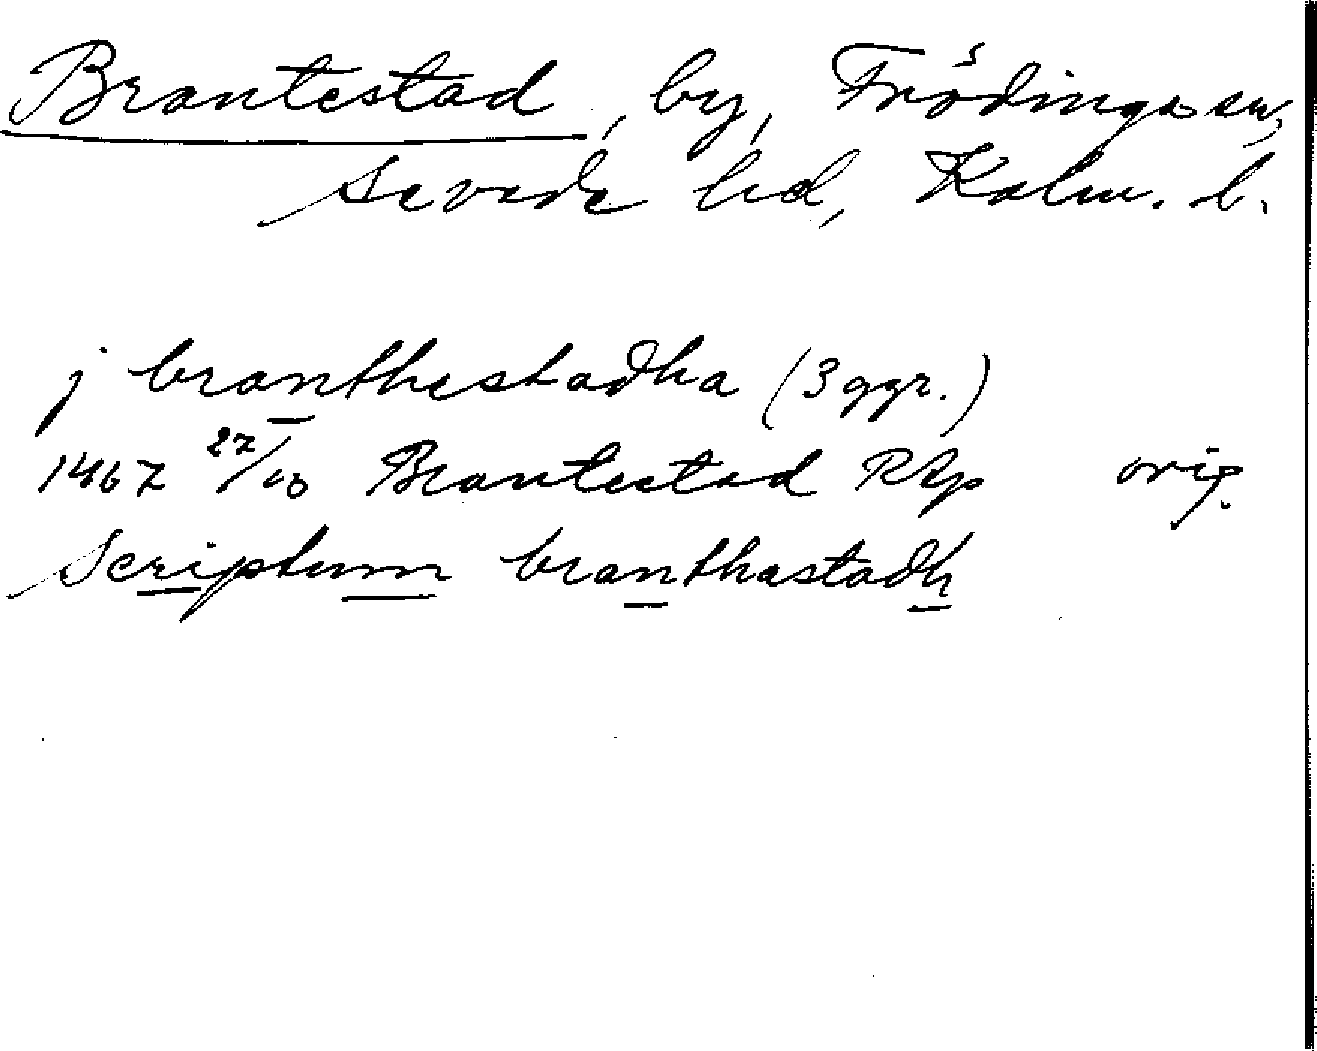 Brantestad, by, Frödinge sn,
Sevede hd, Kalm. l.
j branthestadha (3 ggr.)
1467 27/10 Brantestad RAp orig.
Scriptum branthastadh